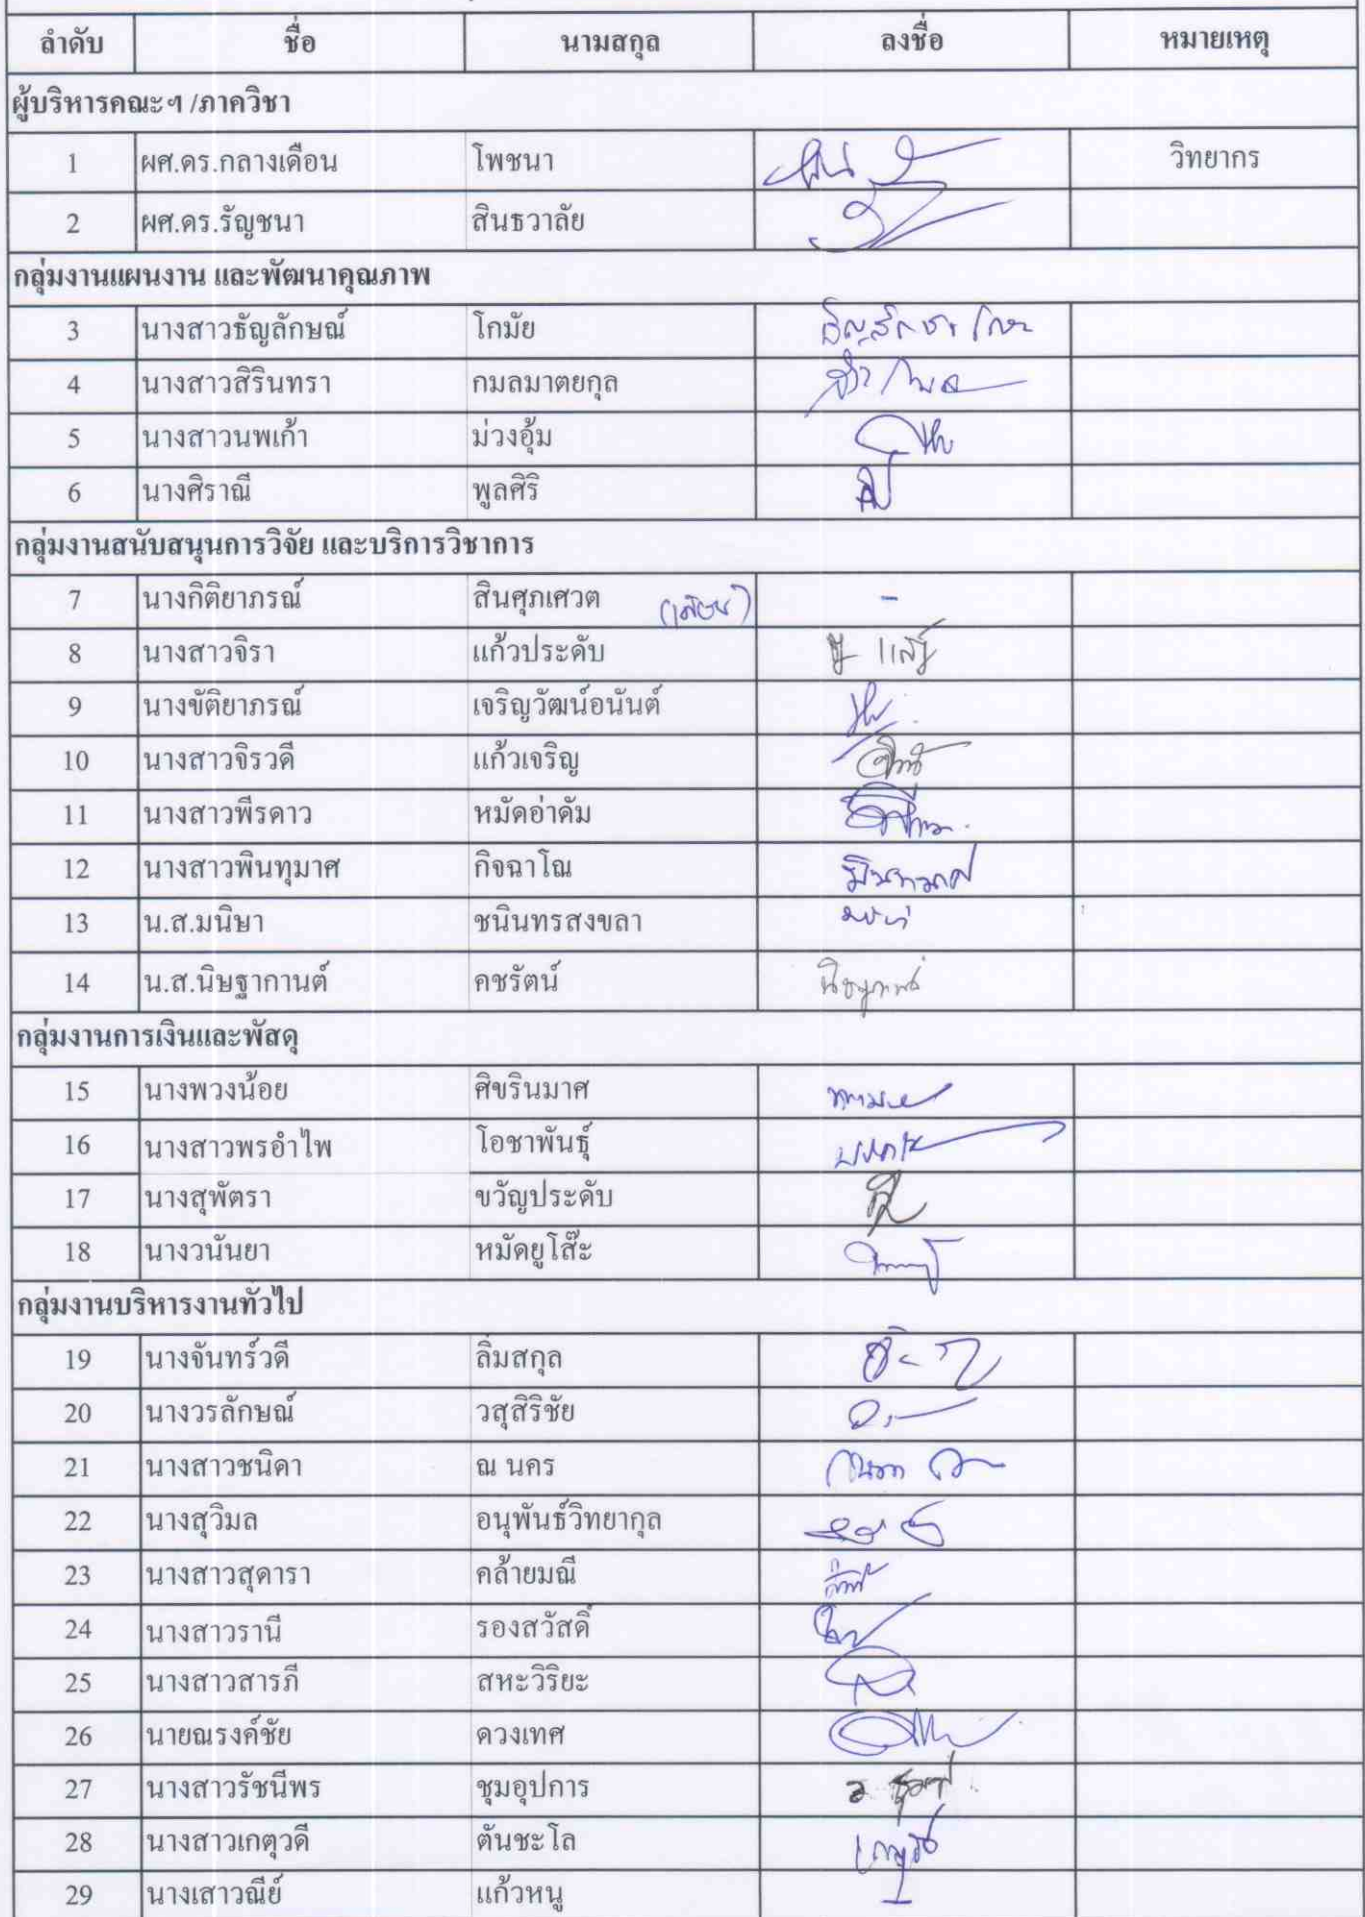 ลำดับ ชื่อ นามสกุล ลงชื่อ หมายเหตุ
ผู้บริหารคณะฯ /ภาควิชา
1 ผศ.ดร.กลางเดือน โพชนา วิทยากร
2 ผศ.ดร.รัญชนา สินธวาลัย
กลุ่มงานแผนงาน และพัฒนาคุณภาพ
3 นางสาวธัญลักษณ์ โกมัย
4 นางสาวสิรินทรา กมลมาตยกุล
5 นางสาวนพเก้า ม่วงอุ้ม
6 นางศิราณี พูลศิริ
กลุ่มงานสนับสนุนการวิจัย และบริการวิชาการ
7 นางกิติยาภรณ์ สินศุภเศวต -
8 นางสาวจิรา แก้วประดับ
9 นางขัติยาภรณ์ เจริญวัฒน์อนันต์
10 นางสาวจิรวดี แก้วเจริญ
11 นางสาวพีรดาว หมัดอ่าดัม
12 นางสาวพินทุมาศ กิจฉาโณ
13 น.ส.มนิษา ชนินทรสงขลา
14 น.ส.นิษฐากานต์ คชรัตน์
กลุ่มงานการเงินและพัสดุ
15 นางพวงน้อย ศิขรินมาศ
16 นางสาวพรอำไพ โอชาพันธุ์
17 นางสุพัตรา ขวัญประดับ
18 นางวนันยา หมัดยูโส๊ะ
กลุ่มงานบริหารงานทั่วไป
19 นางจันทร์วดี ลิ่มสกุล
20 นางวรลักษณ์ วสุสิริชัย
21 นางสาวชนิดา ณ นคร
22 นางสุวิมล อนุพันธ์วิทยากุล
23 นางสาวสุดารา คล้ายมณี
24 นางสาวรานี รองสวัสดิ์
25 นางสาวสารภี สหะวิริยะ
26 นายณรงค์ชัย ดวงเทศ
27 นางสาวรัชนีพร ชุมอุปการ
28 นางสาวเกตุวดี ตันชะโล
29 นางเสาวณีย์ แก้วหนู